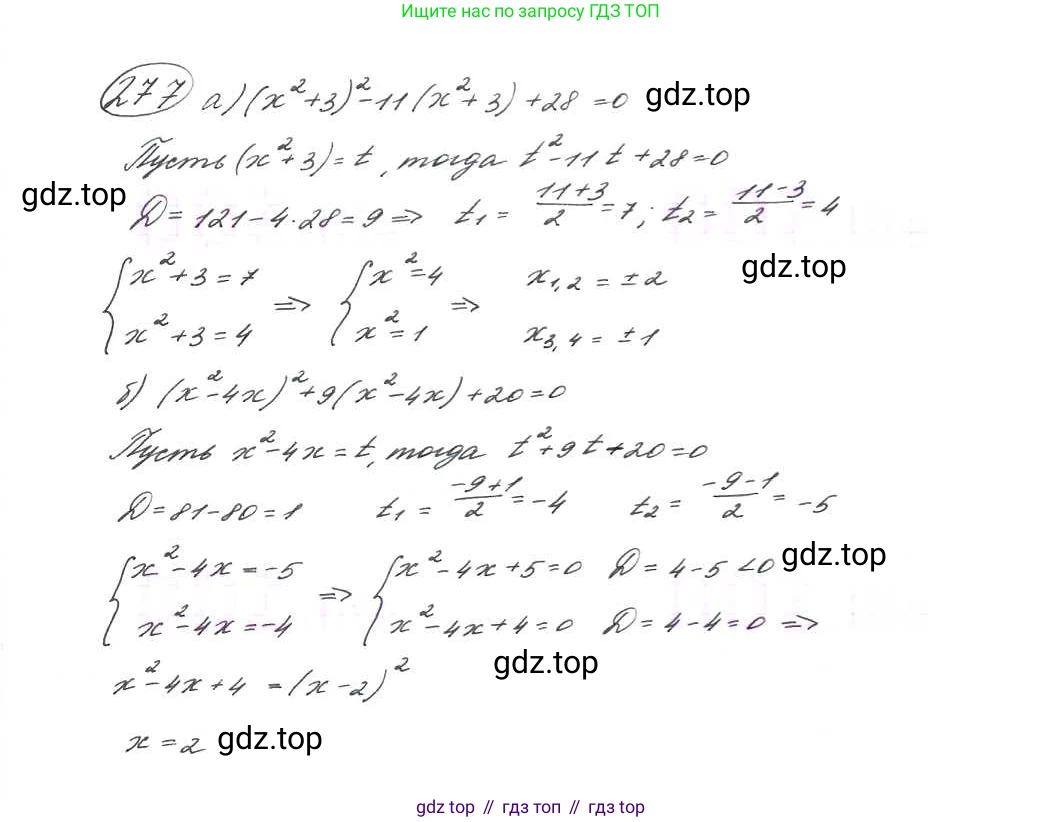 Ищите нас по запросу ГДЗ ТОП
277 а) (x²+3)²-11(x²+3)+28=0 gdz.top
Пусть (x²+3)=t, тогда t²-11t+28=0
gdz.top
D=121-4·28=9 => t₁ = (11+3)/2 = 7; t₂ = (11-3)/2 = 4
{x²+3=7 {x²=4 x₁,₂ = ±2 gdz.top
=> =>
x²+3=4 x²=1 x₃,₄ = ±1
б) (x²-4x)²+9(x²-4x)+20=0
Пусть x²-4x=t, тогда t²+9t+20=0
D=81-80=1 t₁ = (-9+1)/2 = -4 t₂ = (-9-1)/2 = -5
{x²-4x=-5 {x²-4x+5=0 D=4-5<0 gdz.top
=>
x²-4x=-4 x²-4x+4=0 D=4-4=0 =>
gdz.top
x²-4x+4 =(x-2)²
x=2 gdz.top
gdz top // гдз топ // gdz top